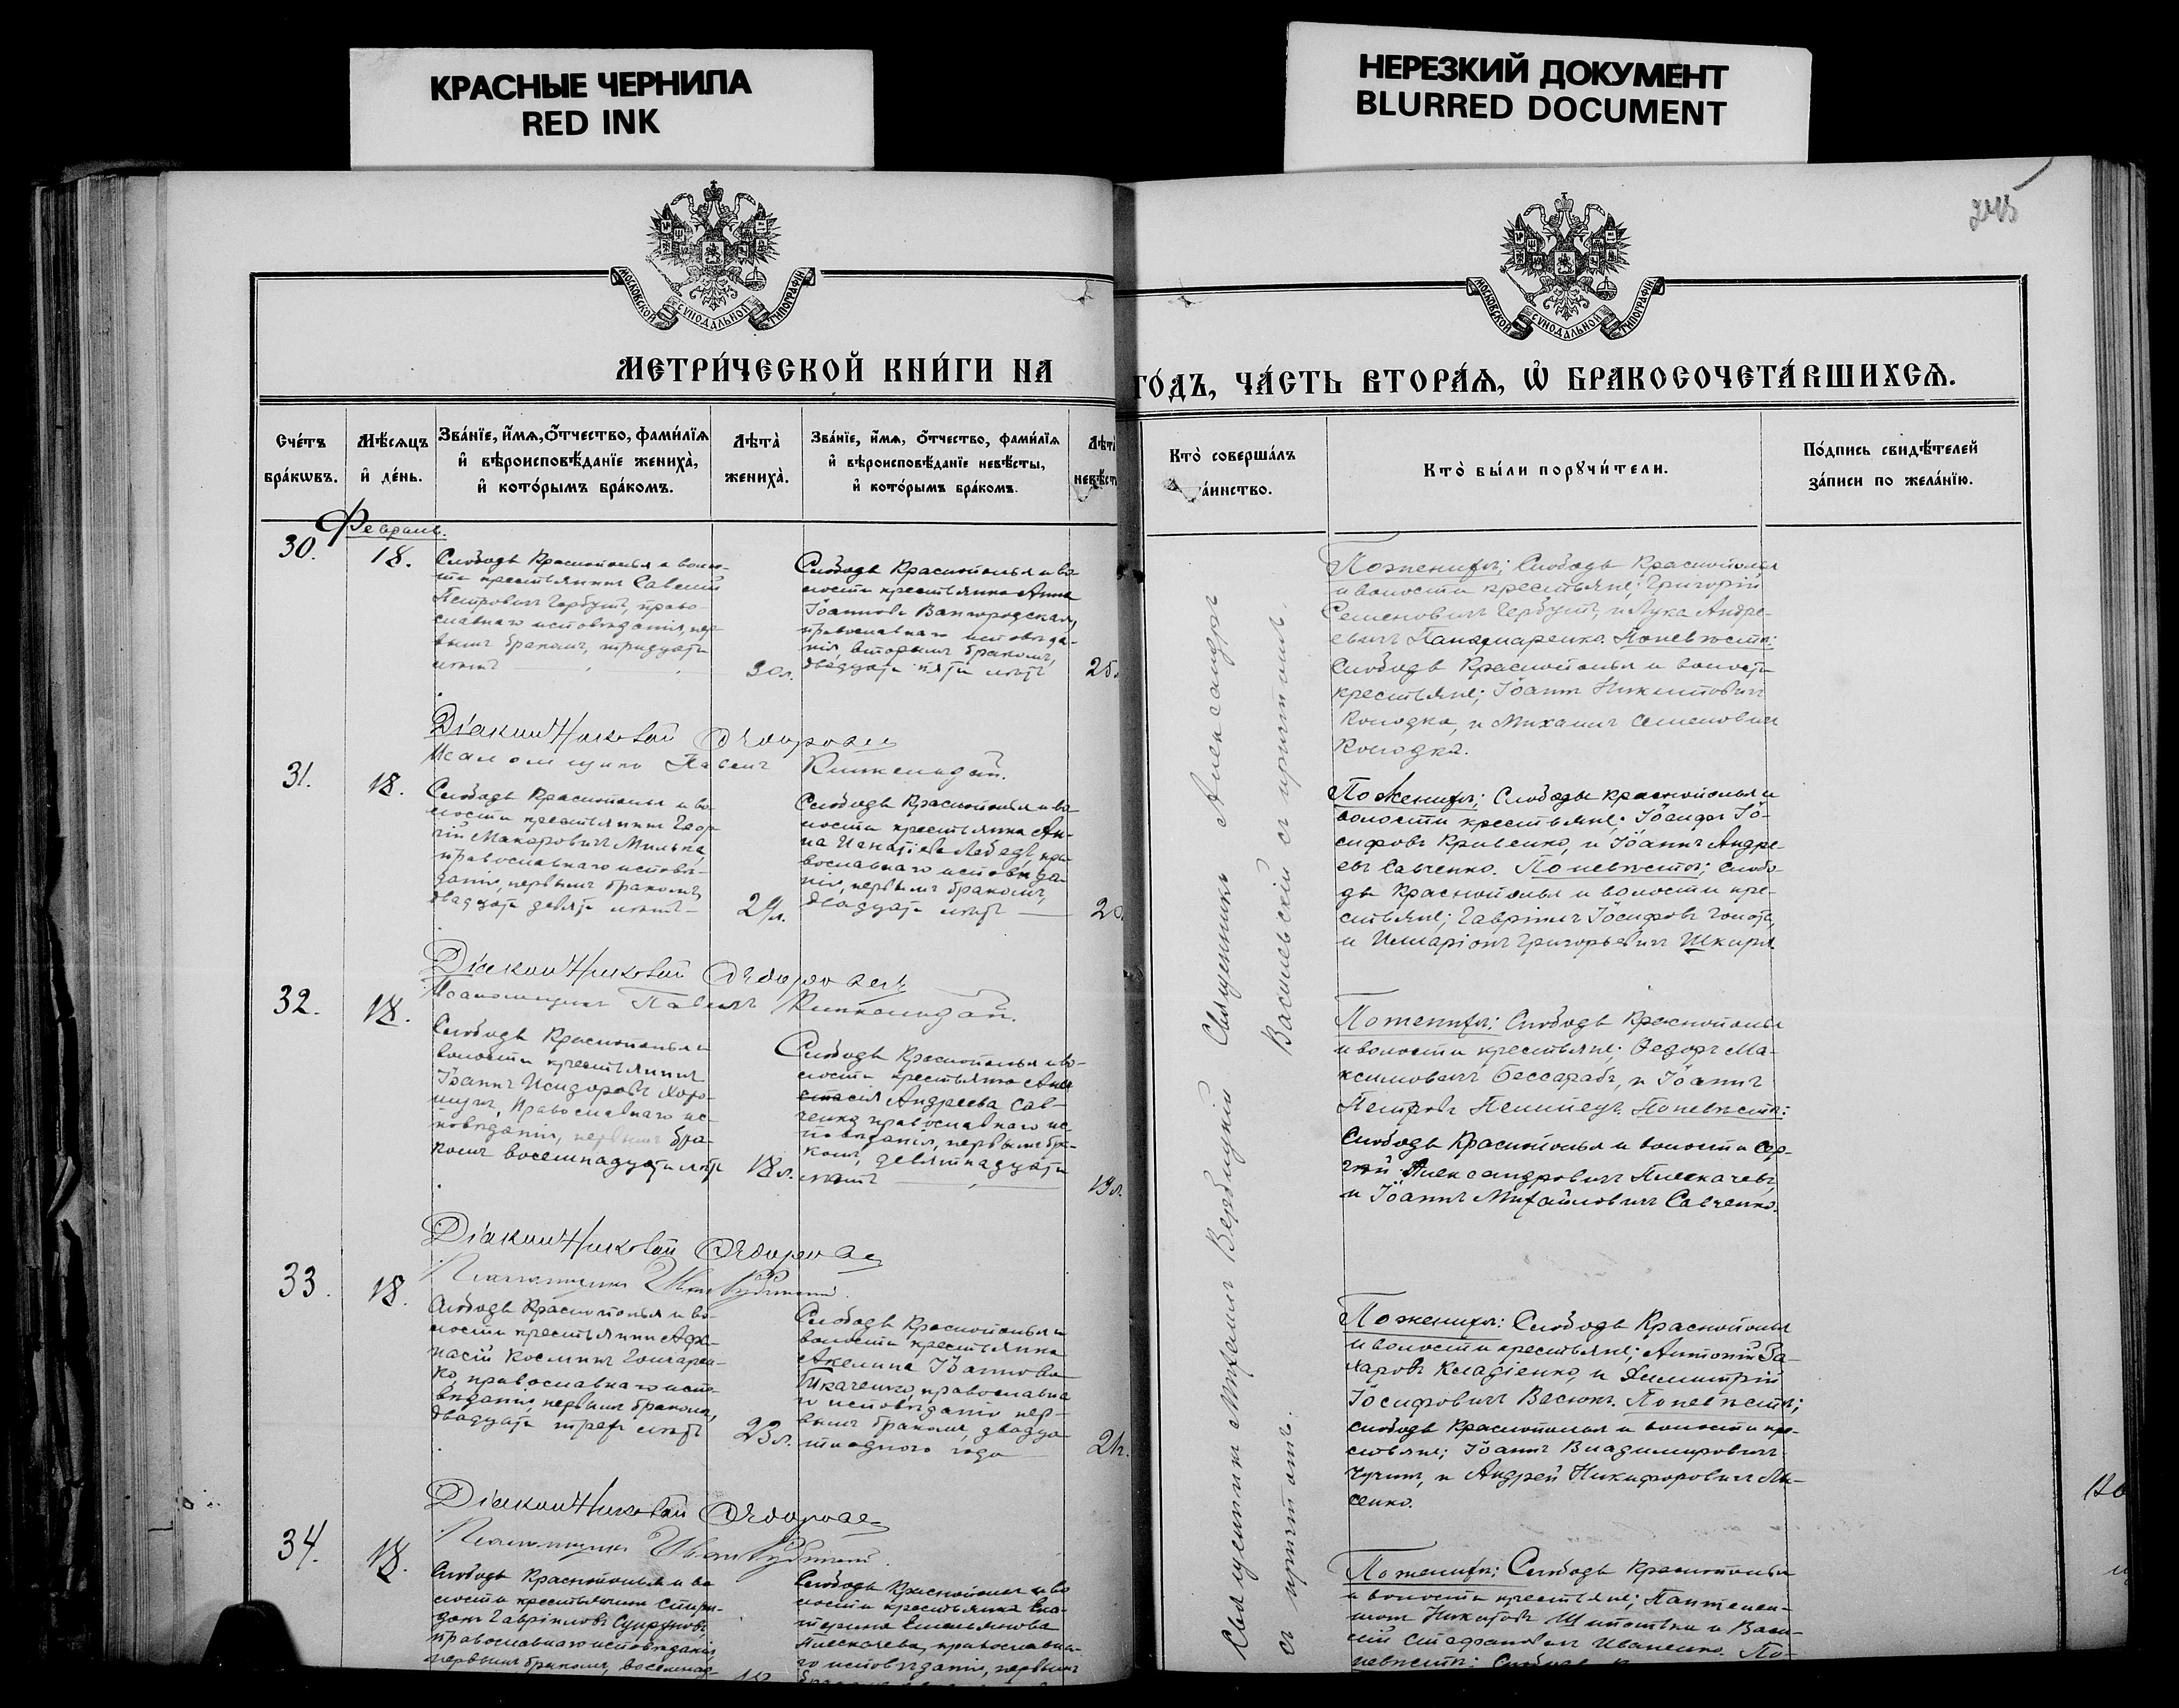 КРАСНЫЕ ЧЕРНИЛА
RED INK
НЕРЕЗКИЙ ДОКУМЕНТ
BLURRED DOCUMENT
245
МОСКОВСКОЙ СѴНОДАЛЬНОЙ ТИПОГРАФІИ
МОСКОВСКОЙ СѴНОДАЛЬНОЙ ТИПОГРАФІИ
МЕТРИ́ЧЕСКОЙ КНИ́ГИ НА
ГО́ДЪ, ЧА́СТЬ ВТОРА́Я, Ѡ҆ БРАКОСОЧЕТА́ВШИХСЯ.
Сче́тъ
бра́кѡвъ.
Мѣ́сяцъ
и҆ де́нь.
Зва́нїе, и҆́мя, ѻ҆́тчество, фами́лїя
и҆ вѣроисповѣ́данїе жениха̀,
и҆ кото́рымъ бра́комъ.
Лѣта̀
жениха̀.
Зва́нїе, и҆́мя, ѻ҆́тчество, фами́лїя
и҆ вѣроисповѣ́данїе невѣ́сты,
и҆ кото́рымъ бра́комъ.
Лѣта̀
невѣ́ст
Кто̀ соверша́лъ
та́инство.
Кто̀ бы́ли порꙋчи́тели.
По́дпись свидѣ́телей
за́писи по жела́нїю.
Февраль.
30.
18.
Слободы Краснополья и воло-
сти крестьянинъ Савелий
Петровичъ Гербутъ, право-
славнаго исповѣданія, пер-
вымъ бракомъ, тридцати
лѣтъ
30 л.
Слободы Краснополья и во-
лости крестьянка Анна
Іоаннова
православнаго исповѣда-
нія, вторымъ бракомъ,
двадцати пяти лѣтъ
25
По женихѣ: Слободы Краснополья
и волости крестьяне; Григорій
Семеновичъ Гербутъ, и Лука Андре-
евичъ Панамаренко. По невѣстѣ:
Слободы Краснополья и волости
крестьяне; Іоаннъ Никитовичъ
Колодка, и Михаилъ Семеновичъ
Колодка.
Діаконъ Николай
Псаломщикъ Павелъ
31.
18.
Слободы Краснополья и во-
лости крестьянинъ Геор-
гій Макаровичъ Милька,
православнаго исповѣ-
данія, первымъ бракомъ,
двадцати девяти лѣтъ
29 л.
Слободы Краснополья и во-
лости крестьянка Ан-
на Игнатіева Лебедь, пра-
вославнаго исповѣда-
нія, первымъ бракомъ,
двадцати лѣтъ
20
По женихѣ; Слободы Краснополья и
волости крестьяне; Іосифъ Іо-
сифовъ Кривенко, и Іоаннъ Андре-
евъ Савченко. По невѣстѣ; Слобо-
ды Краснополья и волости кре-
стьяне; Гавріилъ Іосифовъ Голота,
и Илларіонъ Григорьевичъ Шкиря.
Діаконъ Николай
Псаломщикъ Павелъ
32.
18.
Слободы Краснополья и
волости крестьянинъ
Іоаннъ Исидоровъ Хоро-
шунъ, Православнаго ис-
повѣданія, первымъ бра-
комъ восемнадцати лѣтъ
18 л.
Слободы Краснополья и во-
лости крестьянка Ана-
стасія Андреева Сав-
ченко, православнаго ис-
повѣданія, первымъ бра-
комъ, девятнадцати
лѣтъ
19 л.
По женихѣ: Слободы Краснополья
и волости крестьяне; Ѳедоръ Ма-
ксимовичъ Бессарабъ, и Іоаннъ
Петровъ По невѣстѣ:
Слободы Краснополья и волости Сер-
гѣй Александровичъ Плескачевъ,
и Іоаннъ Михайловичъ Савченко.
Діаконъ Николай
Псаломщикъ Иванъ
33.
18.
Слободы Краснополья и во-
лости крестьянинъ Афа-
насій Косминъ Гончарен-
ко, православнаго испо-
вѣданія, первымъ бракомъ,
двадцати трехъ лѣтъ
23 л.
Слободы Краснополья и
волости крестьянка
Акелина Іоаннова
Ткаченко, православна-
го исповѣданія пер-
вымъ бракомъ, двадца-
ти одного года
21 г.
По женихѣ: Слободы Краснополья
и волости крестьяне; Антоній За-
харовъ Кладіенко, и Димитрій
Іосифовичъ Васюкъ. По невѣстѣ;
Слободы Краснополья и волости кре-
стьяне; Іоаннъ Владимировичъ
и Андрей Никифоровичъ Ли-
сенко.
Діаконъ Николай
Псаломщикъ Иванъ
34.
18.
Слободы Краснополья и во-
лости крестьянинъ Спири-
донъ Гавріиловъ Супруновъ,
православнаго исповѣданія,
первымъ бракомъ, восемнад-
Слободы Краснополья и во-
лости крестьянка Ека-
терина Емельянова
Плескачева, православна-
го исповѣданія, первымъ
По женихѣ: Слободы Краснополья
и волости крестьяне; Пантелей-
монъ Никитовъ и Васи-
лій Стефановичъ Иваненко. По
невѣстѣ:
Священникъ Михаилъ Вербицкій Священникъ Александръ
съ причтомъ. Васильевскій съ причтомъ.